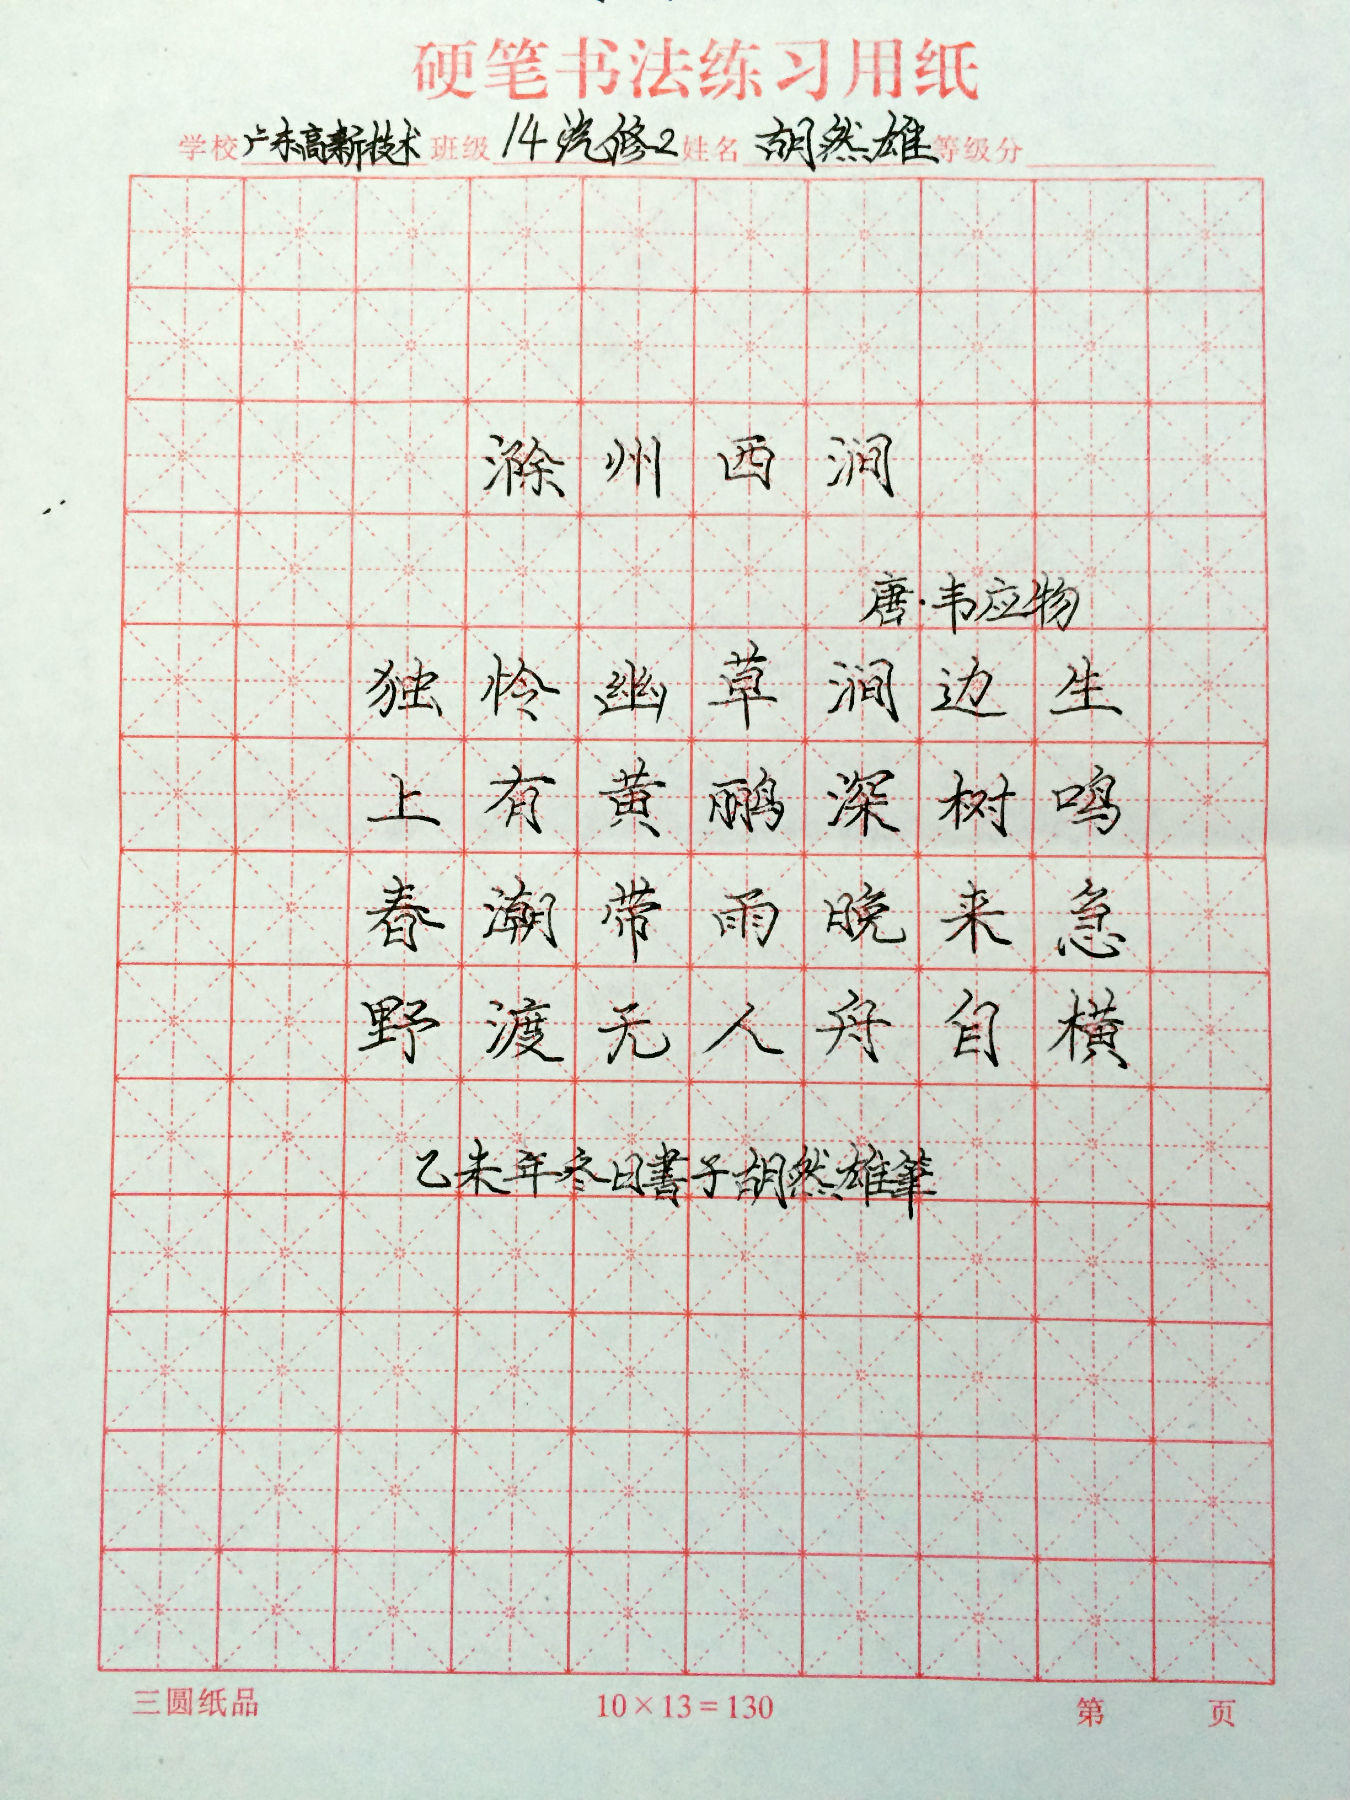 硬笔书法练习用纸
学校 广东高新技术 班级 14汽修2 姓名 胡然雄 等级分
滁州西涧
唐·韦应物
独怜幽草涧边生
上有黄鹂深树鸣
春潮带雨晚来急
野渡无人舟自横
乙未年冬日書于胡然雄筆
三圆纸品 10×13=130 第 页